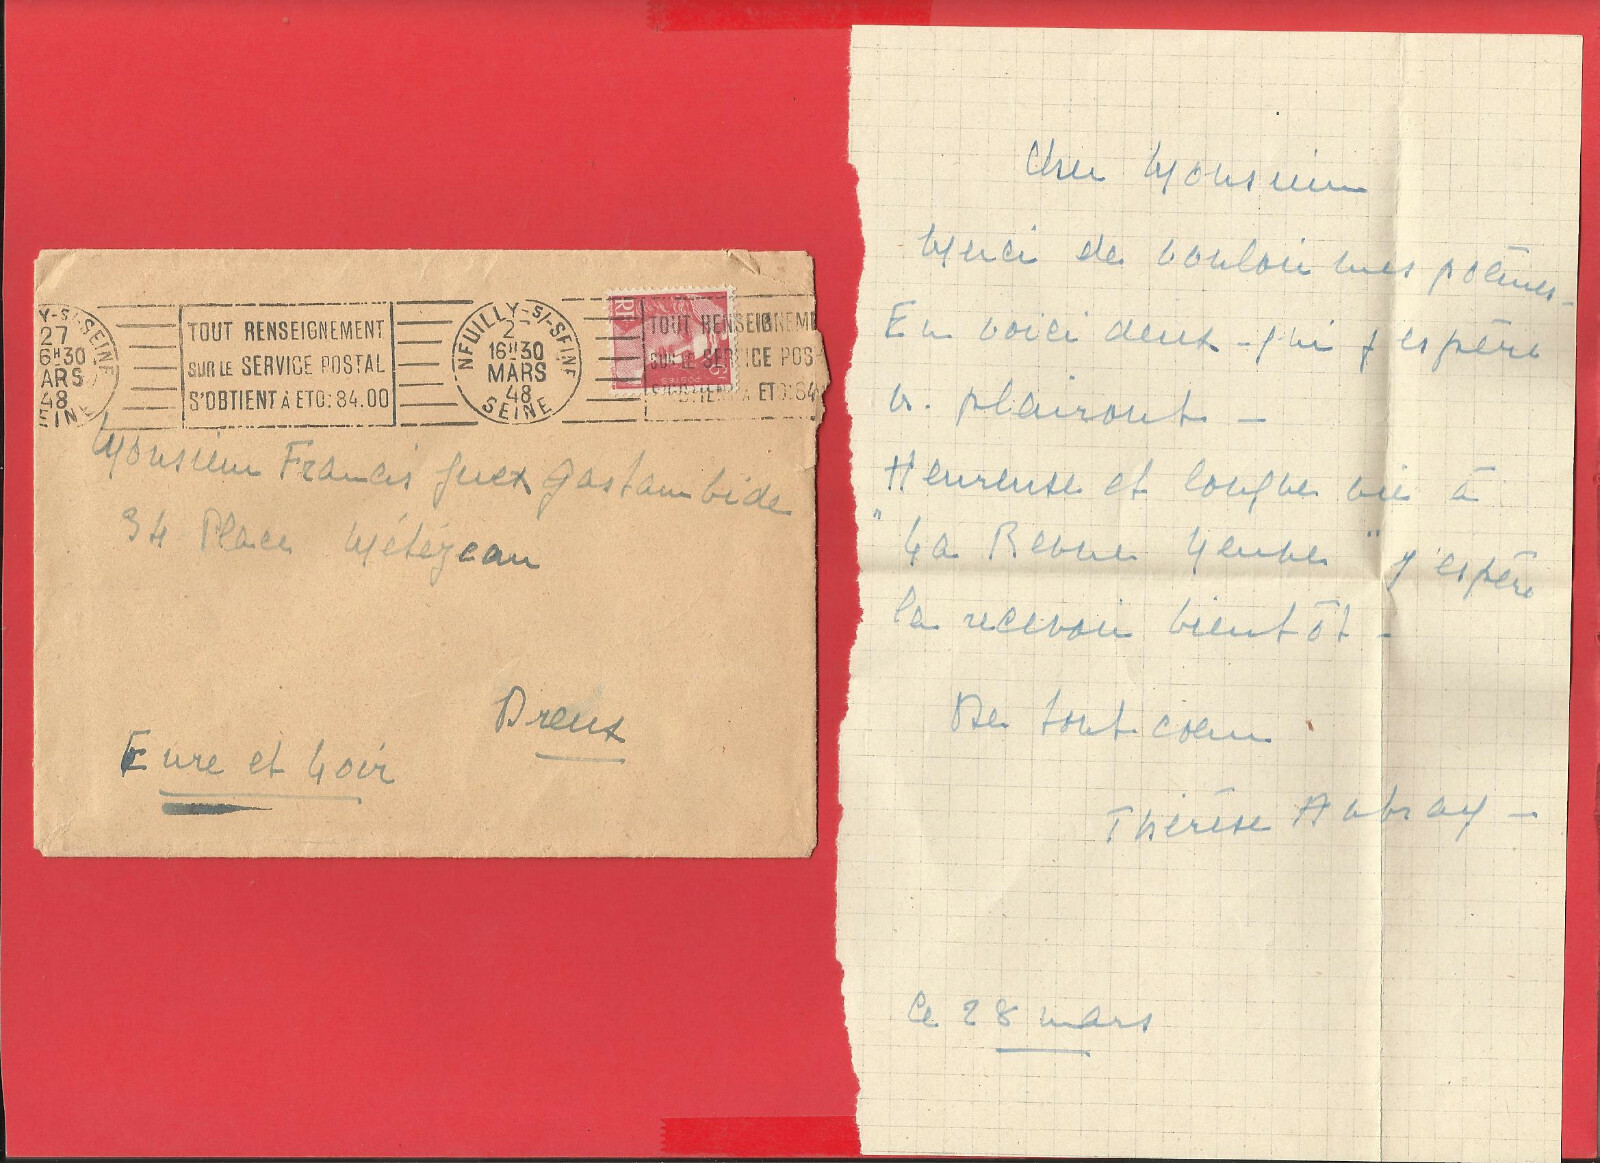 Y-S/-SEINE
27
6H30
ARS
48
EINE
TOUT RENSEIGNEMENT
SUR LE SERVICE POSTAL
S'OBTIENT À ETO: 84.00
NEUILLY-S/-SEINE
2
16H30
MARS
48
SEINE
RF
POSTES
TOUT RENSEIGNEM
SUR LE SERVICE POS
S'OBTIENT À ETO: 84
Monsieur Francis Guex Gastambide
34 Place Métézeau
Dreux
Eure et Loir
Cher Monsieur
Merci de vouloir mes poèmes -
En voici deux - qui j'espère
v. plairont -
Heureuse et longue vie à
"La Revue Neuve" j'espère
la recevoir bientôt -
De tout coeur
Thérèse Aubray -
Ce 28 mars